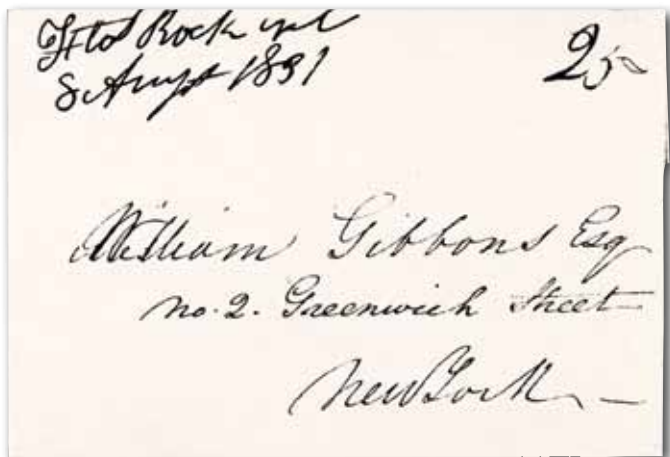 Flat Rock
8 Augst 1831
25
William Gibbons Esq
no. 2. Greenwich Street
New York